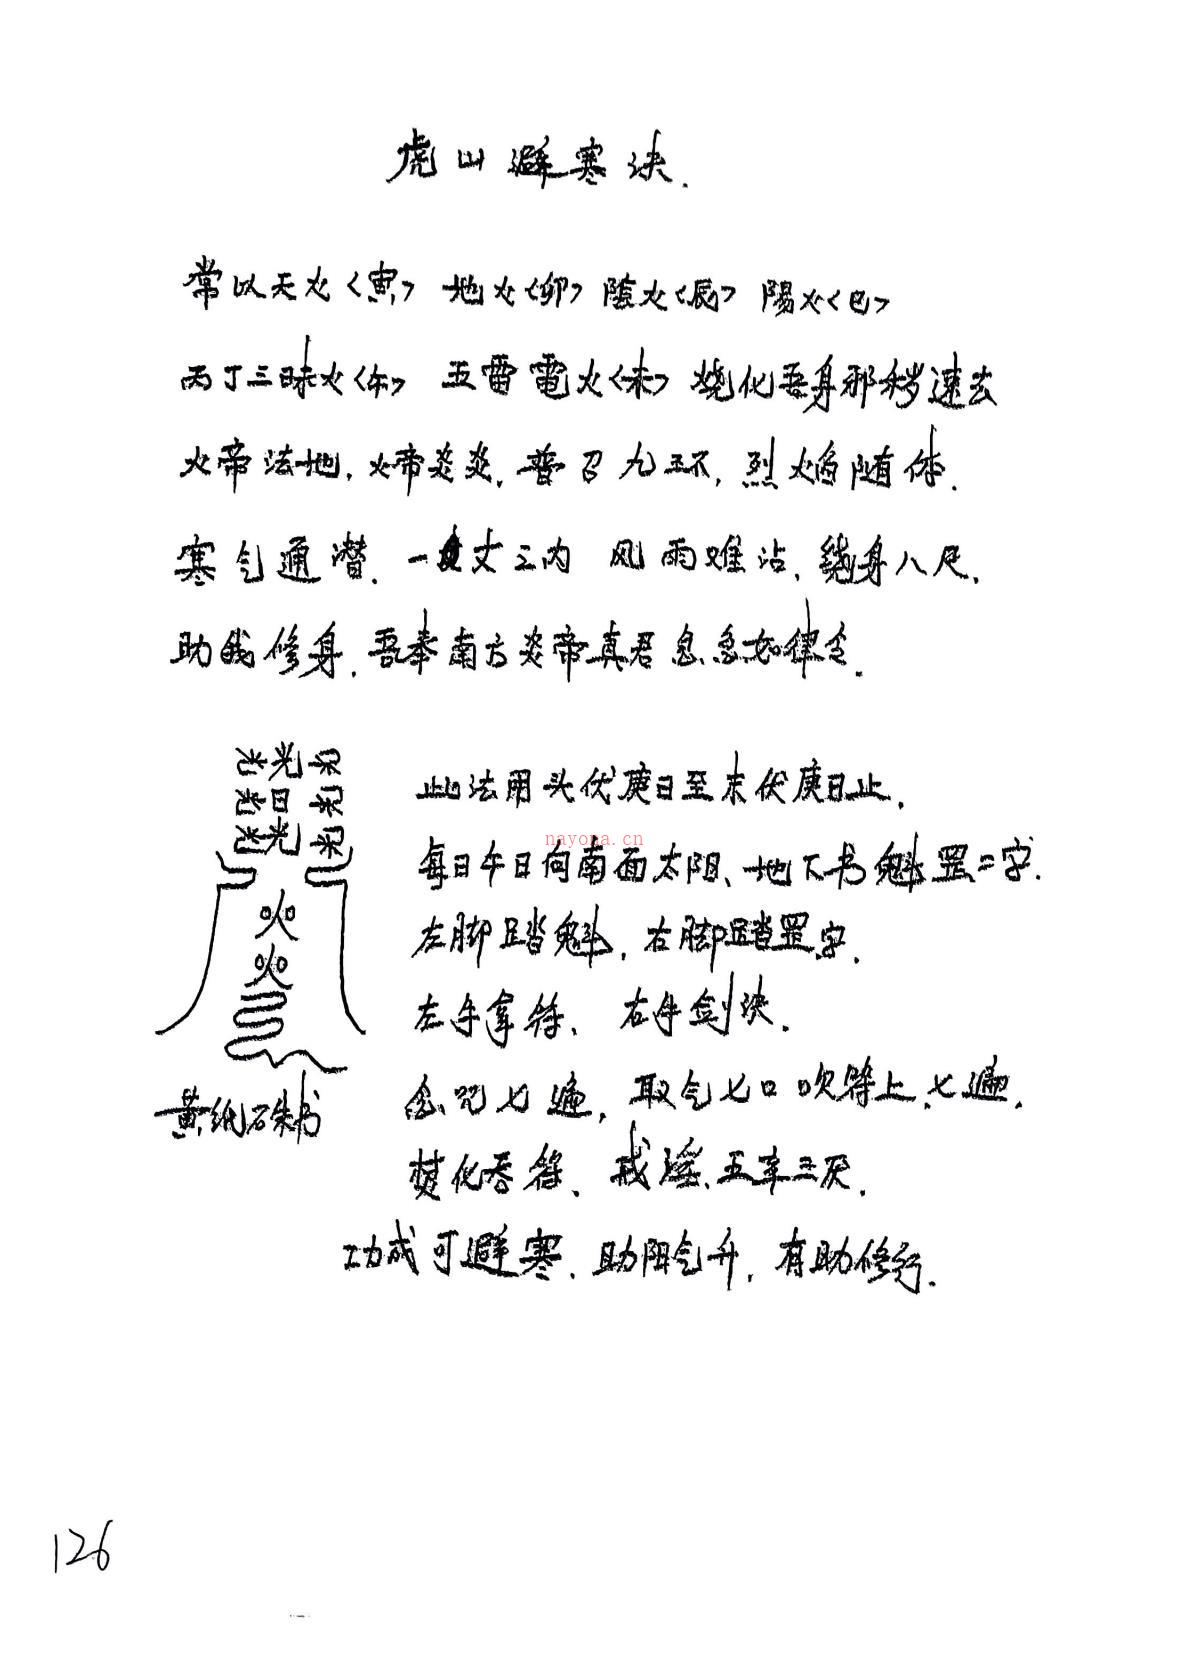 虎山避寒诀.
常以天火<寅> 地火<卯> 陰火<辰> 陽火<巳>
丙丁三昧火<午> 五雷電火<未> 烧化吾身邪秽速去
火帝法地.火帝炎炎.普召九环,烈焰随体.
寒气通潜.一丈之内 风雨难沾,繞身八尺,
助我修身.吾奉南方炎帝真君急急如律令.
光光
日
光
火
火
黄纸石朱书
nayona.cn
此法用头伏庚日至末伏庚日止.
每日午日向南面太阳、地下书魁罡二字.
左脚踏魁,右脚踏罡字.
左手拿符、右手剑诀.
念咒七遍,取气七口吹符上.七遍.
焚化吞符、戒淫.五荤三厌.
功成可避寒.助阳气升,有助修行.
126